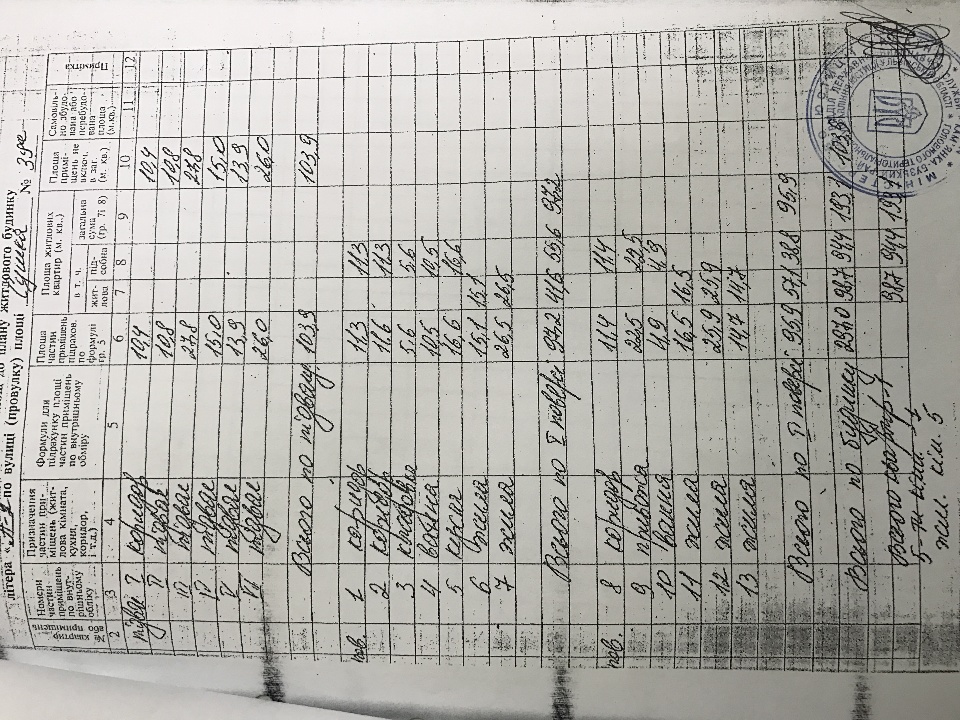 літера по вулиці (провулку) площі №
плану житлового будинку
№ квартир або приміщень
Номери частин приміщень по внутрішньому обліку
Призначення частин приміщень (житлова кімната, кухня, коридор, і т.д.)
Формули для підрахунку площі частин приміщень по внутрішньому обміру
Площа частин приміщень підрахов. по формулі гр. 5
Площа житлових квартир (м. кв.)
в т. ч.
житлова
підсобна
загальна сума (гр. 7і 8)
Площа приміщень не включ. в заг. (м. кв.)
Самовільно збудована або перебудована площа (м.кв.)
Примітка
2 3 4 5 6 7 8 9 10 11 12
підвал I коридор 10,4 10,4
II підвал 10,8 10,8
III підвал 27,8 27,8
IV підвал 15,0 15,0
V підвал 13,9 13,9
VI підвал 26,0 26,0
Всього по підвалу 103,9 103,9
пов. 1 коридор 11,3 11,3
2 коридор 11,3
3 кладова 5,6 5,6
4 10,5 10,5
5 кухня 16,6 16,6
6 жила 15,1 15,1
7 жила 26,5 26,5
Всього по I поверсі 97,2 41,6 55,6 97,2
пов. 8 коридор 11,4 11,4
9 22,5 22,5
10 ванна 4,9 4,9
11 жила 16,5 16,5
12 жила 25,9 25,9
13 жила 14,7 14,7
Всього по II поверсі 95,9 57,1 38,8 95,9
Всього по будинку 297,0 98,7 94,4 193,1 103,9
Всього 98,7 94,4 193,1
5-ти кімн.
жил. кім. 5